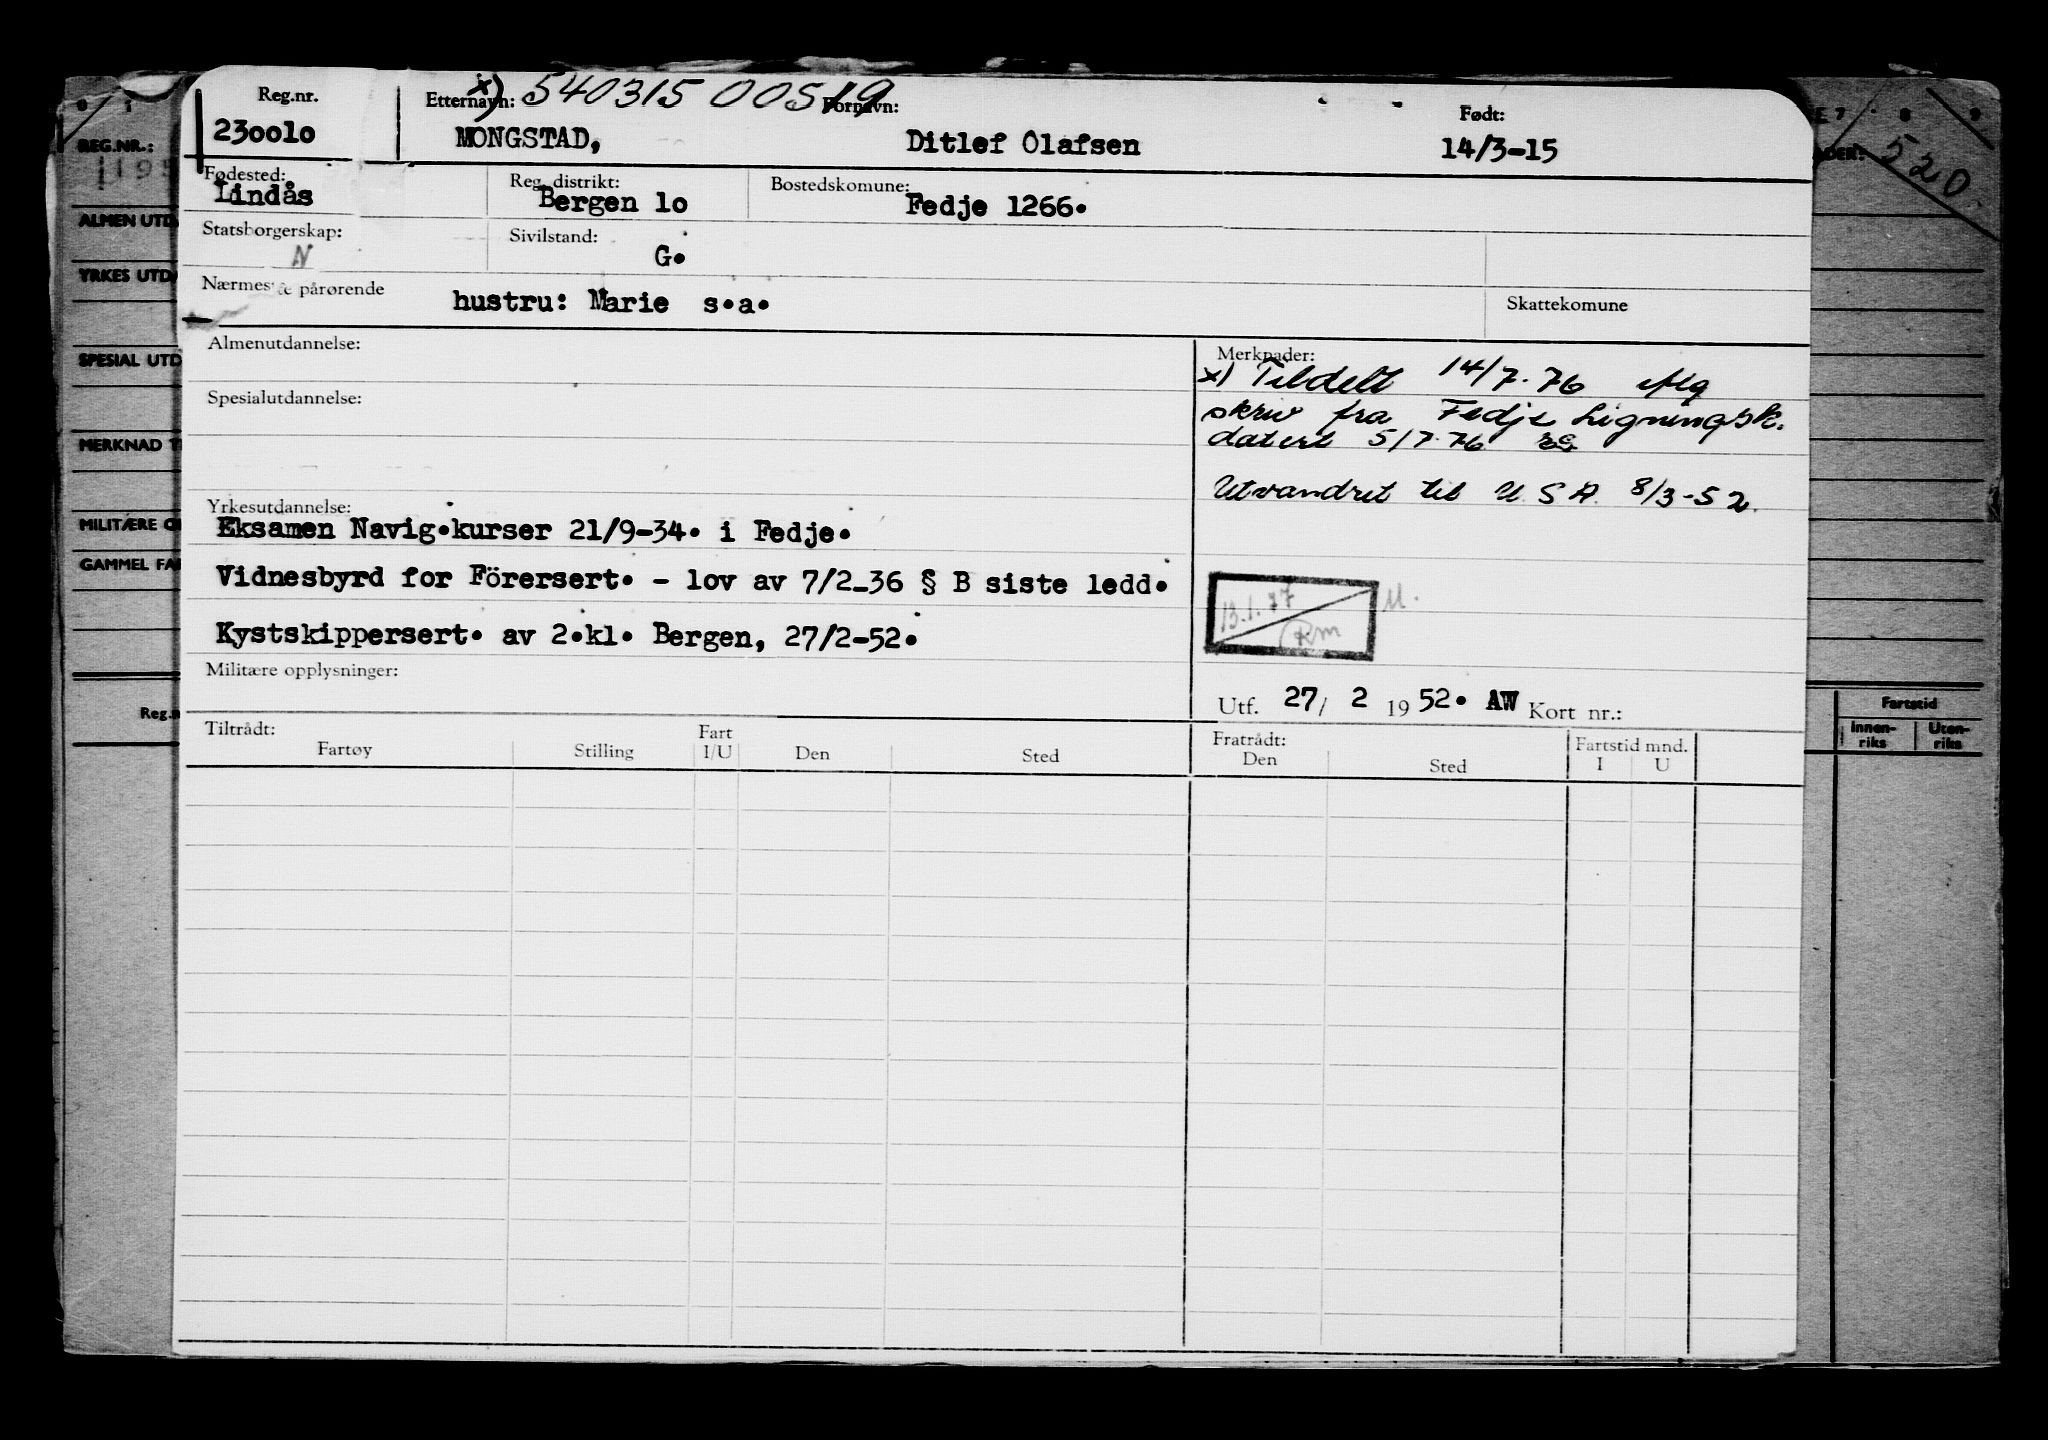 Reg.nr.
23oolo
Etternavn: x) 540315 00519 Fornavn:
MONGSTAD, Ditlef Olafsen
Født:
14/3-15
Fødested:
Lindås
Reg. distrikt:
Bergen lo
Bostedskomune:
Fedje 1266.
Statsborgerskap:
N
Sivilstand:
G.
Nærmeste pårørende
hustru: Marie s.a.
Skattekomune
Almenutdannelse:
Spesialutdannelse:
Yrkesutdannelse:
Eksamen Navig.kurser 21/9-34. i Fedje.
Vidnesbyrd for Förersert. - lov av 7/2-36 § B siste ledd.
Kystskippersert. av 2.kl. Bergen, 27/2-52.
Militære opplysninger:
Merknader:
x) Tildelt 14/7-76 iflg
skriv fra Fedje Ligningsk.
datert 5/7-76
Utvandret til U S A. 8/3-52.
13.1.77
Rm
M.
Utf. 27/ 2 1952. AW Kort nr.:
Tiltrådt:
Fartøy Stilling Fart I/U Den Sted
Fratrådt:
Den Sted
Fartstid mnd.
I U
REG.NR.:
1195
ALMEN UTD
YRKES UTDA
SPESIAL UTD
MERKNAD T
MILITÆRE O
GAMMEL FA
Reg.n
E 7 8 9
520
Fartstid
Innen-
riks
Uten-
riks